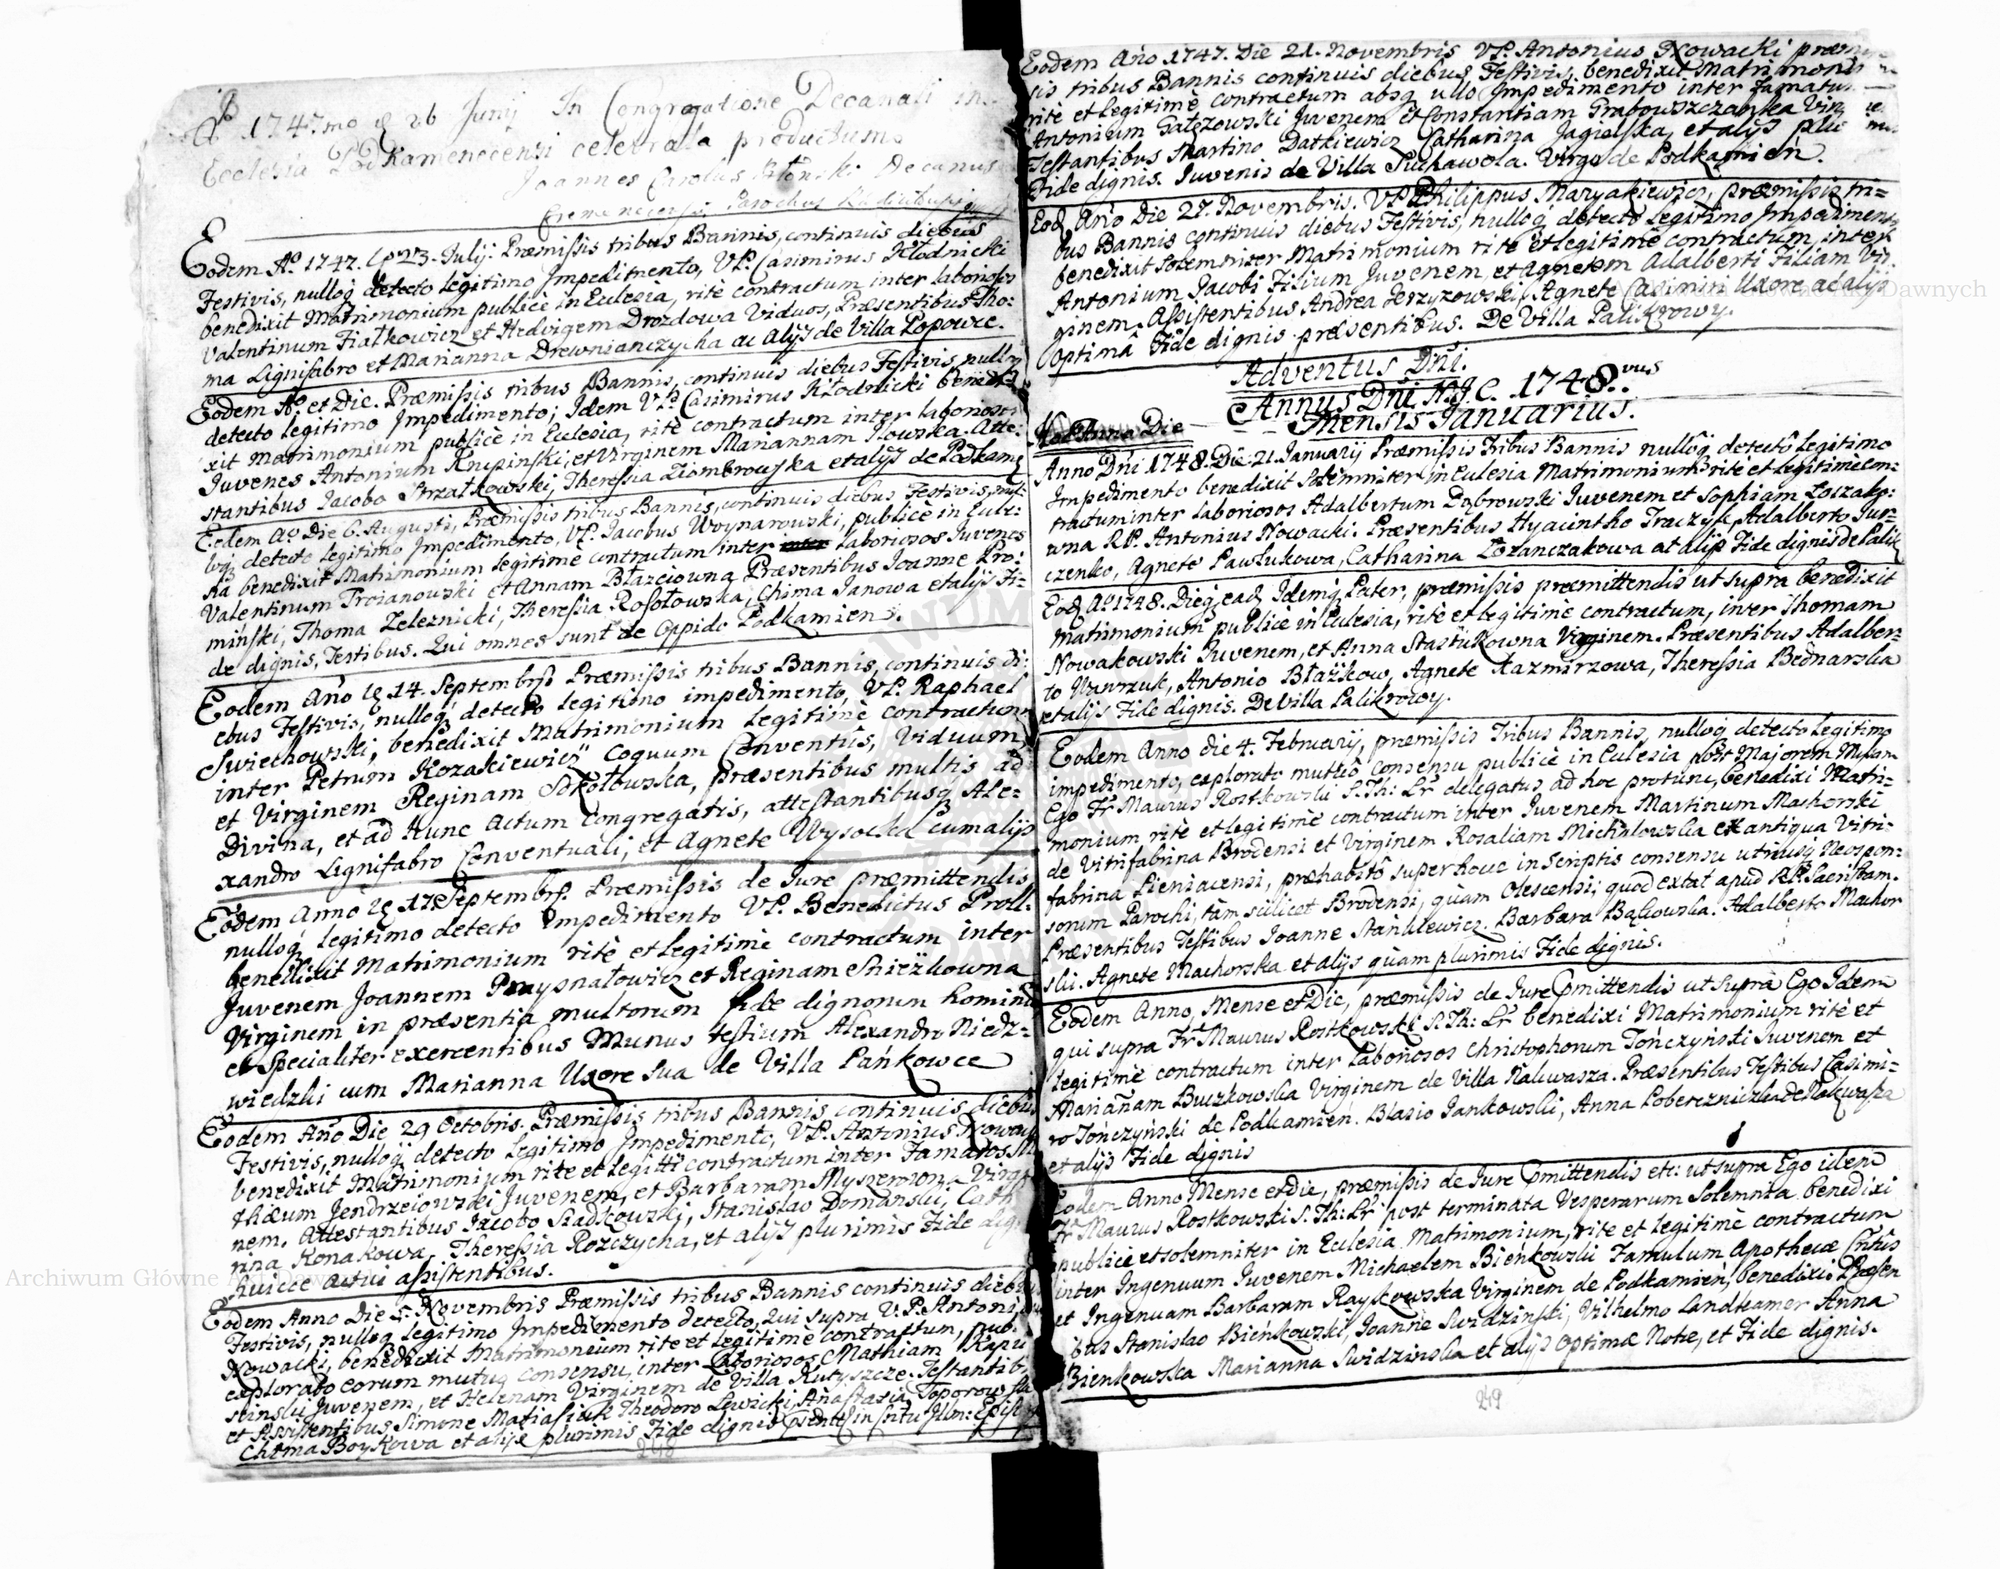 Ao 1747mo d 26 Junij In Congregatione Decanali in
Ecclesia Podkamenecensi celebrata productum
Joannes Carolus Decanus
Cremenecensis Parochus
Eodem Ao 1747. d 23. Julij. Præmissis tribus Bannis, continuis diebus
Festivis, nulloq detecto legitimo Impedimento, VP. Casimirus Kłodnicki
benedixit Matrimonium publicè in Eclesia, ritè contractum inter laboriosos
Valentinum Fiałkowicz et Hedvigem Drozdowa Viduos, Præsentibus Tho:
ma Lignifabro et Marianna Drewnianczycha ac alijs de Villa Popowce.
Eodem Ao et Die. Præmissis tribus Bannis, continuis diebus Festivis, nulloq
detecto legitimo Impedimento; Idem VP. Casimirus Kłodnicki benedi=
xit Matrimonium publicè in Eclesia, ritè contractum inter laboriosos
Juvenes Antonium Krupinski, et Virginem Mariannam Iłowska. Atte:
stantibus Jacobo Strzałkowski, Theressia Ziombrowska et alijs de Podkamię
Eodem Ao Die 6. Augusti, Præmissis tribus Bannis, continuis diebus Festivis, nul:
loq detecto legitimo Impedimento, VP. Jacobus Woynarowski, publicè in Ecle:
sia benedixit Matrimonium legitimè contractum inter laboriosos Juvenes
Valentinum Troianowski et Annam Błazeiowna Præsentibus Joanne Kri
minski, Thoma Zeleznicki, Theressia Rosołowska, Chima Janowa et alijs Fi=
de dignis, Testibus. Qui omnes sunt de Oppido Podkamien.
Eodem Año d 14. Septembris Præmissis tribus Bannis, continuis di:
ebus Festivis, nulloq detecto legitimo impedimento, VP. Raphael
Swiechowski, benedixit Matrimonium legitimè contractum
inter Petrum Kozakiewicz Coquum Conventûs, Viduum
et Virginem Reginam Sokołowska, præsentibus multis ad
Divina, et ad Hunc Actum congregatis, attestantibusq Ale=
xandro Lignifabro Conventuali, et Agnete Wysocka cum alijs
Eodem Anno d 17 Septembris Præmissis de Jure præmittendis
nulloq legitimo detecto Impedimento VP. Benedictus Proll.
benedixit Matrimonium ritè et legitimè contractum inter
Juvenem Joannem Praysnałowicz et Reginam Sniezkowna
Virginem in præsentia multorum fide dignorum hominū
et specialiter exercentibus Munus testium Alexandro Niedz=
wiedzki cum Marianna Uxore sua de Villa Pańkowce
Eodem Año Die 29 Octobris. Præmissis tribus Bannis continuis diebus
Festivis, nulloq detecto legitimo Impedimento, VP. Antonius Nowac
benedixit Matrimonium rite et legitti contractum inter Famatos M
thæum Jendrzeiowski Juvenem, et Barbaram Myszewion Virgi
nem. Attestantibus Jacobo Sładkowski, Stanislao Domanski, Cath
rina Konakowa, Theressia Rozczycha, et alijs plurimis Fide dig
huicce actui assistentibus.
Eodem Anno Die 5. Novembris Præmissis tribus Bannis continuis diebu
Festivis, nulloq legitimo Impedimento detecto, Qui supra V.P. Antoni
Nowacki, benedixit Matrimonium rite et legitimè contractum, pub.
explorato eorum mutuo consensu, inter Laboriosos Mathiam Kapu
scinski Juvenem, et Helenam Virginem de Villa Rutyszcze. Testantib
et Assistentibus, Simone Matiasiuk Theodoro Lewicki, Anastasia Toporowska
Chima Boykowa et alijs plurimis Fide dignis
248
Eodem Año 1747. Die 21. Novembris VP. Antonius Nowacki præmis
sis tribus Bannis continuis diebus Festivis, benedixit Matrimoniu
ritè et legitimè contractum absq ullo Impedimento inter Famatum
Antonium Gałęzowski Juvenem et Constantiam Grabowszczanka Virg
Testantibus Martino Datkiewicz Catharina Jagielska, et alijs plu
Fide dignis. Juvenis de Villa Suchawola. Virgo de Podkamień.
Eodq Año Die 27. Novembris. VP. Philippus Maryakiewicz, præmissis tri=
bus Bannis continuis diebus Festivis, nulloq detecto legitimo Impedimento
benedixit solemniter Matrimonium ritè et legitimè contractum, inter
Antonium Jacobi Filium Juvenem, et Agnetem Adalberti Filiam Vir
ginem. Assistentibus Andrea Jerzyzowski, Agnete Casimiri Uxore ac alijs
optimâ Fide dignis præsentibus. De Villa Palikrowy.
Adventus Dñi.
Annus Dñi N.J.C. 1748.vus
Mensis Januarius.
Anno Die
Anno Dñi 1748. Die 21. Januarij Præmissis Tribus Bannis nulloq detectô legitimo
Impedimento benedixit solemniter in Eclesia Matrimonium ritè et legitimè con=
tractum inter laboriosos Adalbertum Dąbrowski Juvenem et Sophiam Łoszako:
wna RP. Antonius Nowacki. Præsentibus Hyacintho Traczyk Adalberto Jur=
czenko, Agnete Pawlukowa, Catharina Lozanczakowa at alijs Fide dignis de Palik
Eodq Ao 1748. Dieq eadq Idemq Pater, præmissis præmittendis ut supra benedixit
Matrimonium publice in Eclesia, ritè et legitimè contractum, inter Thomam
Nowakowski Juvenem, et Anna Stasiukowna Virginem. Præsentibus Adalber=
to Wawrzuk, Antonio Błażkow, Agnete Kazmirzowa, Theressia Bednarska
et alijs Fide dignis. De Villa Palikrowy.
Eodem Anno die 4. Februarij, præmissis Tribus Bannis, nulloq detecto legitimo
impedimento, explorato mutuô consensu publicè in Eclesia post Majorem Missam
Ego Fr Maurus Rostkowski S.Th: Lr delegatus ad hoc protunc, benedixi Matri=
monium ritè et legitimè contractum inter Juvenem Martinum Machorski
de Vitrifabrina Brodensi et Virginem Rosaliam Michalowska ex antiqua Vitri=
fabrina Pieniacensi, præhabitô super hocce in Scriptis consensu utriusq Neospon=
sorum Parochi, tàm scilicet Brodensi, quàm Olescensi; quod extat apud RP. Sacristam.
Præsentibus Testibus Joanne Stankiewicz. Barbara Bąkowska. Adalberto Machor
ski. Agnete Machorska et alijs quàm plurimis Fide dignis.
Eodem Anno, Mense et Die, præmissis de Jure præmittendis ut suprà Ego Idem
qui supra Fr Maurus Rostkowski S.Th: Lr benedixi Matrimonium ritè et
legitimè contractum inter Laboriosos Christophorum Tończyński Juvenem et
Mariañam Buczkowska Virginem de Villa Nakwasza. Præsentibus Testibus Casimi=
ro Tończyński de Podkamien. Blasio Jankowski, Anna Pobereznicka de Nakwasza
et alijs Fide dignis
Eodem Anno Mense et die, præmissis de Jure præmittendis etc: ut supra Ego idem
Fr Maurus Rostkowski S.Th: Lr post terminata Vesperarum Solemnia benedixi
publicè et solemniter in Eclesia Matrimonium, rite et legitimè contractum
inter Ingenuum Juvenem Michaelem Bieńkowski Famulum Apothecæ Cntûs
et Ingenuam Barbaram Rayskowska Virginem de Podkamień, benedixi. Præsen
ibus Stanislao Bieńkowski, Joanne Swidzinski, Vilhelmo Landkamer Anna
Bienkowska Marianna Swidzinska et alijs Optimæ Notæ, et Fide dignis.
249
Archiwum Główne Akt Dawnych
Archiwum Główne Akt Dawnych